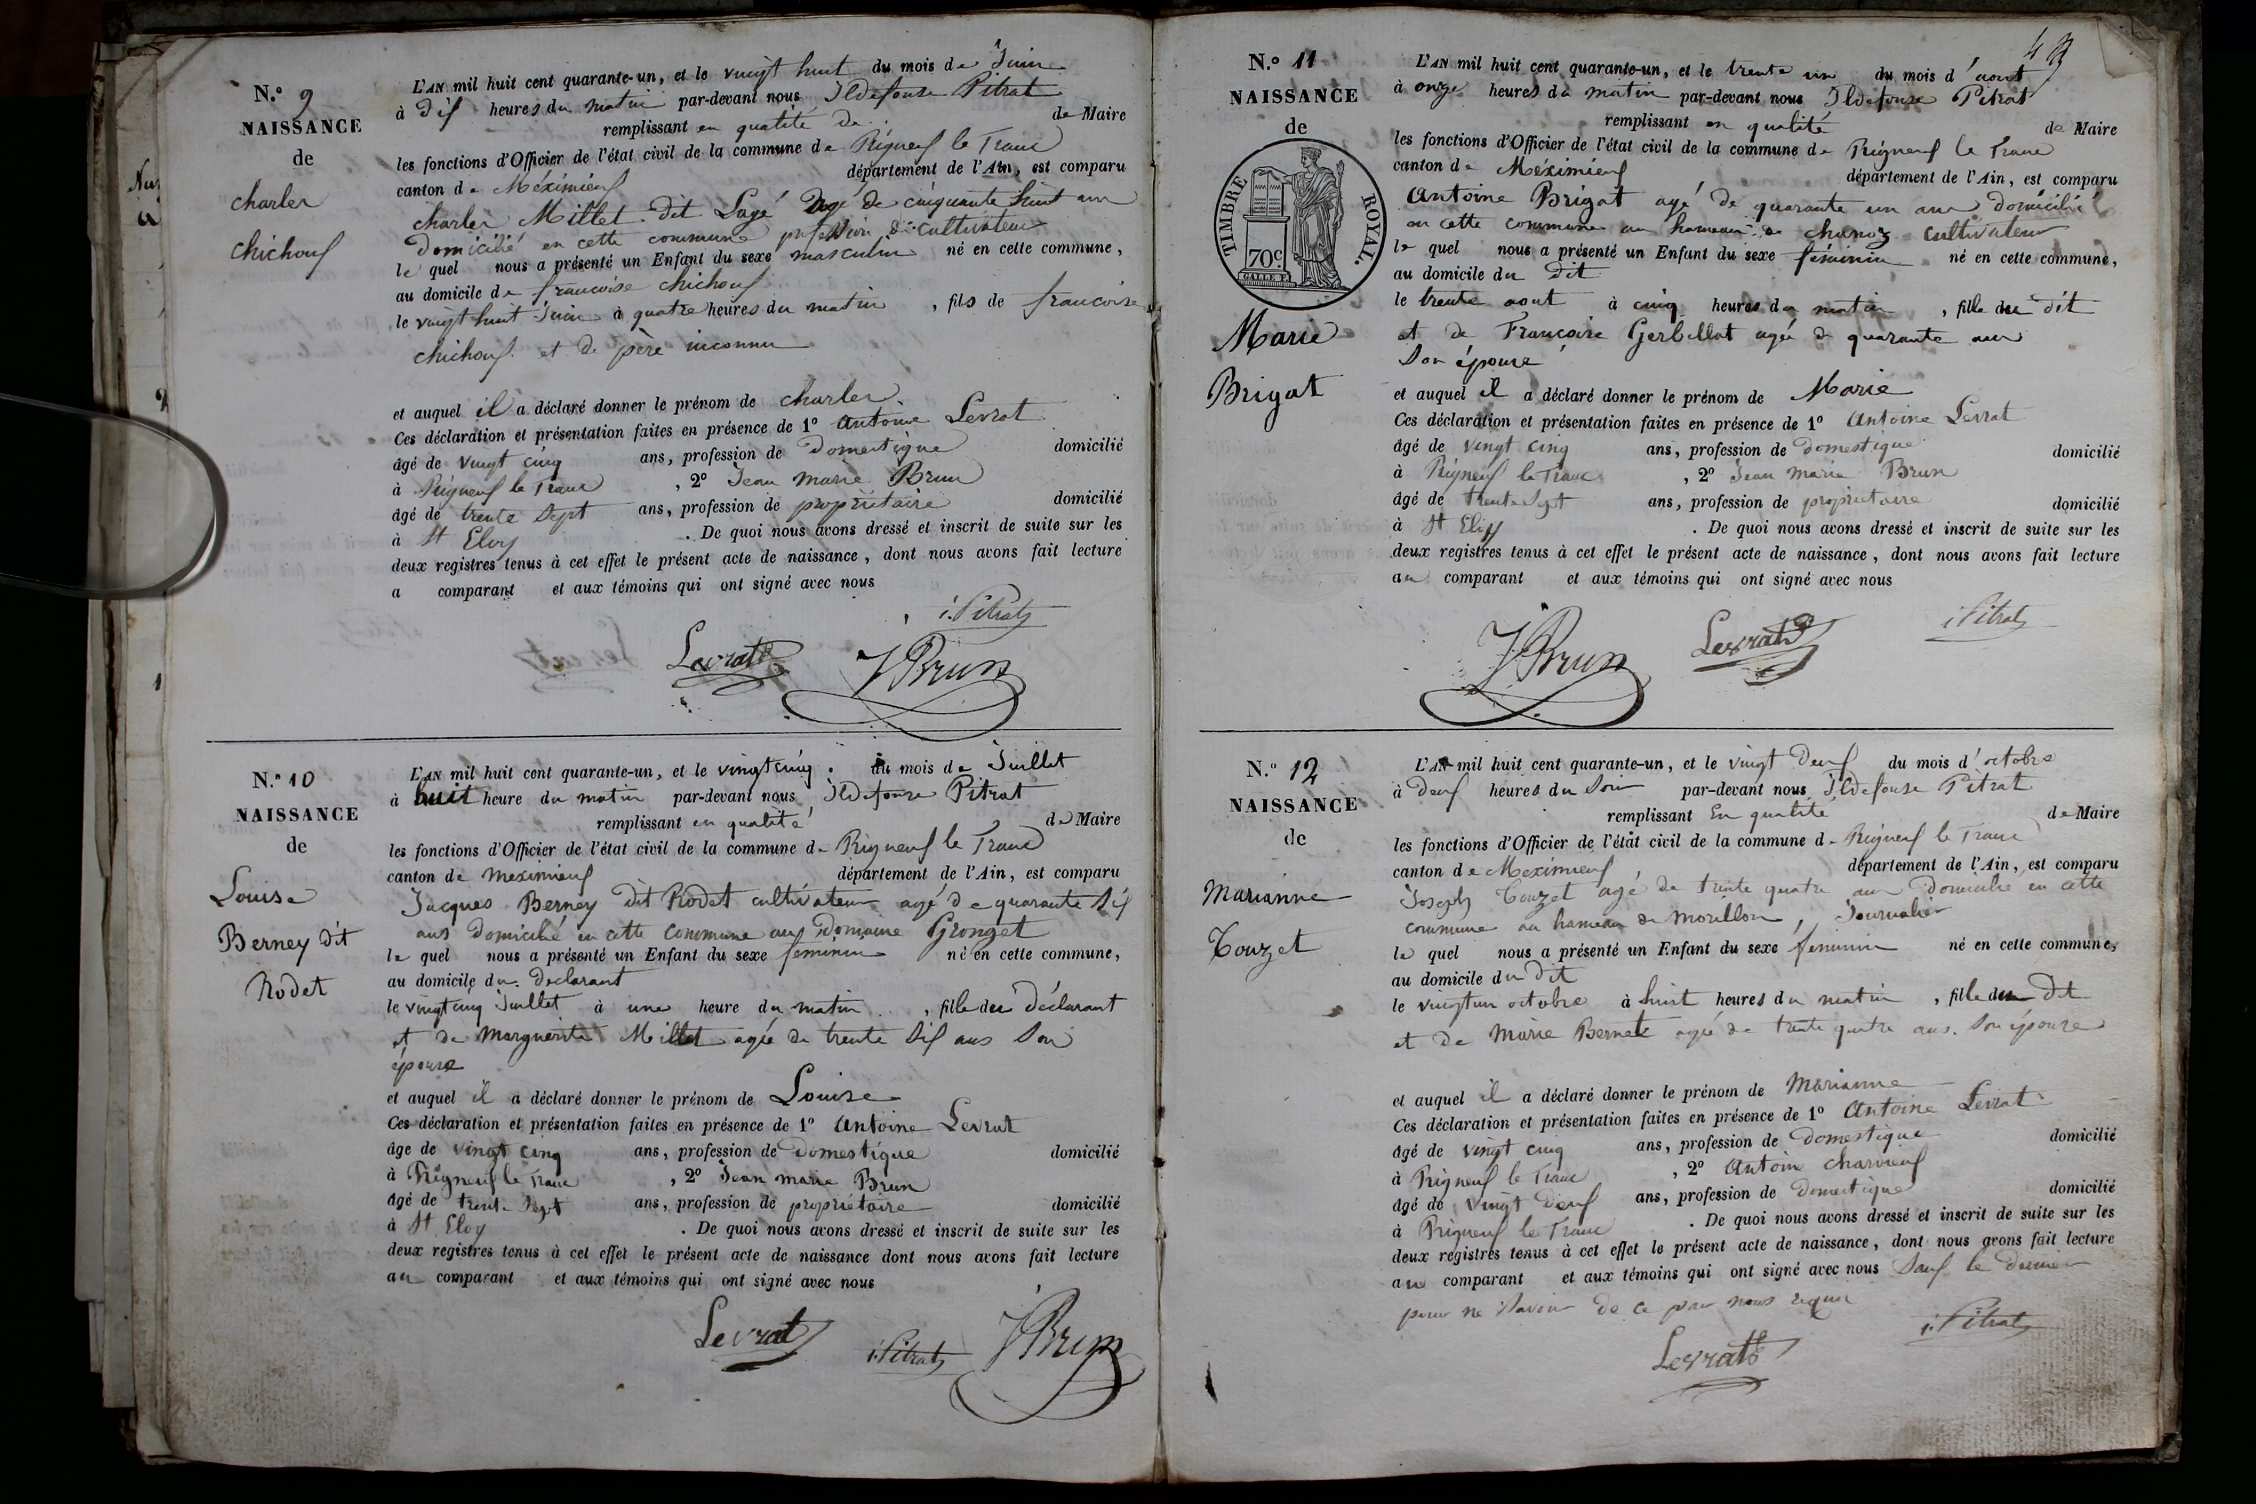 N.° 9
NAISSANCE
de
charles
chichoux
L'AN mil huit cent quarante-un, et le vingt huit du mois de Juin
à dix heures du matin par-devant nous Ildefonse Pitrat
remplissant en qualité de de Maire
les fonctions d'Officier de l'état civil de la commune de Rigneux le Franc
canton de Méximieux département de l'Ain, est comparu
charles Millet dit Sagé agé de cinquante huit ans
domicilié en cette commune profession de cultivateur
le quel nous a présenté un Enfant du sexe masculin né en cette commune,
au domicile de francoise chichoux
le vingt huit Juin à quatre heures du matin , fils de francoise
chichoux et de père inconnu
et auquel il a déclaré donner le prénom de charles
Ces déclaration et présentation faites en présence de 1° antoine Levrat
âgé de vingt cinq ans, profession de domestique domicilié
à Rigneux le Franc , 2° Jean marie Brun
âgé de trente sept ans, profession de propriétaire domicilié
à St Eloy . De quoi nous avons dressé et inscrit de suite sur les
deux registres tenus à cet effet le présent acte de naissance, dont nous avons fait lecture
a comparant et aux témoins qui ont signé avec nous
i. Pitrat
Levrat JBrun
N.° 10
NAISSANCE
de
Louise
Berney dit
Rodet
L'AN mil huit cent quarante-un, et le vingt cinq du mois de Juillet
à huit heure du matin par-devant nous Ildefonse Pitrat
remplissant en qualité de Maire
les fonctions d'Officier de l'état civil de la commune de Rigneux le Franc
canton de meximieux département de l'Ain, est comparu
Jacques Berney dit Rodet cultivateur agé de quarante six
ans domicilié en cette commune au domaine Gronget
le quel nous a présenté un Enfant du sexe feminin né en cette commune,
au domicile du declarant
le vingt cinq Juillet à une heure du matin , fille du déclarant
et de marguerite Millet agée de trente six ans son
épouse
et auquel il a déclaré donner le prénom de Louise
Ces déclaration et présentation faites en présence de 1° antoine Levrat
âge de vingt cinq ans, profession de domestique domicilié
à Rigneux le Franc , 2° Jean marie Brun
âgé de trente sept ans, profession de propriétaire domicilié
à St Eloy . De quoi nous avons dressé et inscrit de suite sur les
deux registres tenus à cet effet le présent acte de naissance dont nous avons fait lecture
au comparant et aux témoins qui ont signé avec nous
Levrat i. Pitrat JBrun
N.° 11
NAISSANCE
de
TIMBRE ROYAL.
70c
Marie
Brigat
L'AN mil huit cent quarante-un, et le trente un du mois d'aout
à onze heures du matin par-devant nous Ildefonse Pitrat
remplissant en qualité de Maire
les fonctions d'Officier de l'état civil de la commune de Rigneux le Franc
canton de Méximieux département de l'Ain, est comparu
antoine Brigat agé de quarante un ans domicilié
en cette commune au hameau de chanoz cultivateur
le quel nous a présenté un Enfant du sexe féminin né en cette commune,
au domicile du dit
le trente aout à cinq heures du matin , fille du dit
et de Francoise Gerbellot agée de quarante ans
son épouse
et auquel il a déclaré donner le prénom de Marie
Ces déclaration et présentation faites en présence de 1° antoine Levrat
âgé de vingt cinq ans, profession de domestique domicilié
à Rigneux le Franc , 2° Jean marie Brun
âgé de trente sept ans, profession de propriétaire domicilié
à St Eloy . De quoi nous avons dressé et inscrit de suite sur les
deux registres tenus à cet effet le présent acte de naissance, dont nous avons fait lecture
au comparant et aux témoins qui ont signé avec nous
JBrun Levrat i. Pitrat
N.° 12
NAISSANCE
de
Marianne
Touzet
L'AN mil huit cent quarante-un, et le vingt deux du mois d'octobre
à deux heures du soir par-devant nous Ildefonse Pitrat
remplissant En qualité de Maire
les fonctions d'Officier de l'état civil de la commune de Rigneux le Franc
canton de Meximieux département de l'Ain, est comparu
Joseph Touzet agé de trente quatre ans domicilié en cette
commune au hameau de morillon, Journalier
le quel nous a présenté un Enfant du sexe féminin né en cette commune,
au domicile du dit
le vingt un octobre à huit heures du matin , fille du dit
et de marie Bernet agée de trente quatre ans son épouse
et auquel il a déclaré donner le prénom de Marianne
Ces déclaration et présentation faites en présence de 1° antoine Levrat
âgé de vingt cinq ans, profession de domestique domicilié
à Rigneux le Franc , 2° antoine charvieux
âgé de vingt deux ans, profession de domestique domicilié
à Rigneux le Franc . De quoi nous avons dressé et inscrit de suite sur les
deux registres tenus à cet effet le présent acte de naissance, dont nous avons fait lecture
au comparant et aux témoins qui ont signé avec nous sauf le dernier
pour ne savoir de ce par nous requis
Levrat i. Pitrat